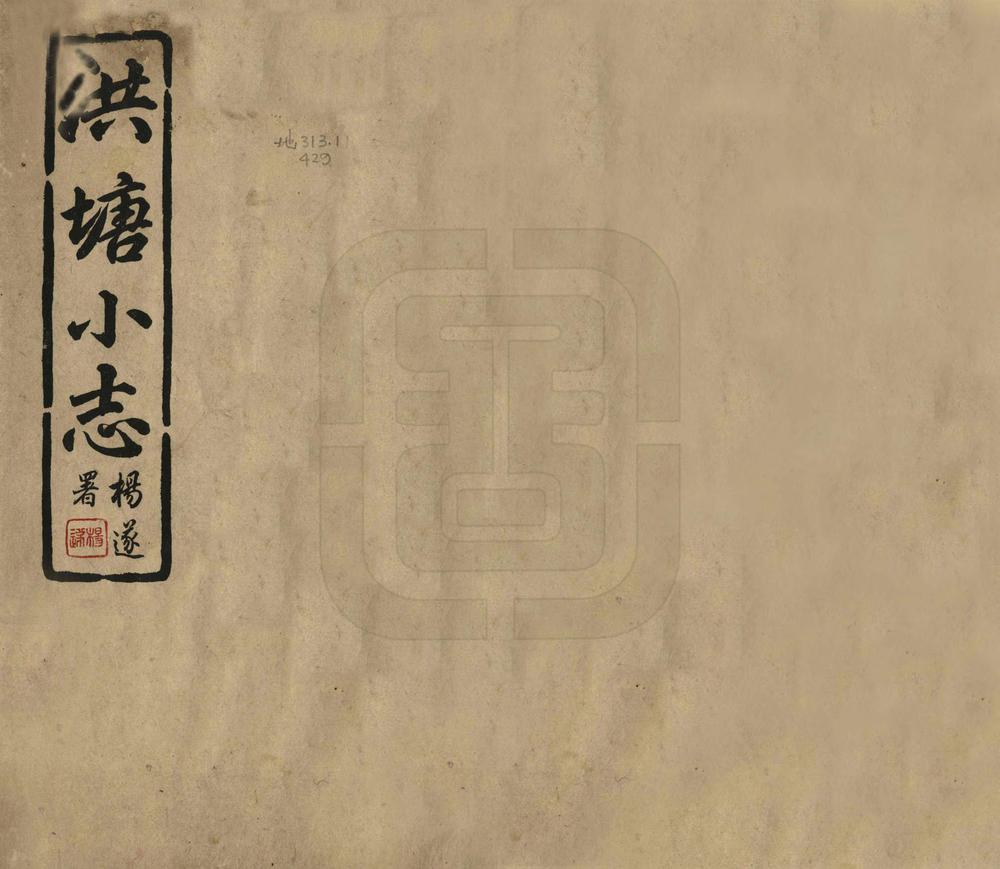 洪塘小志
楊遂
署
楊遂
地313.1
429